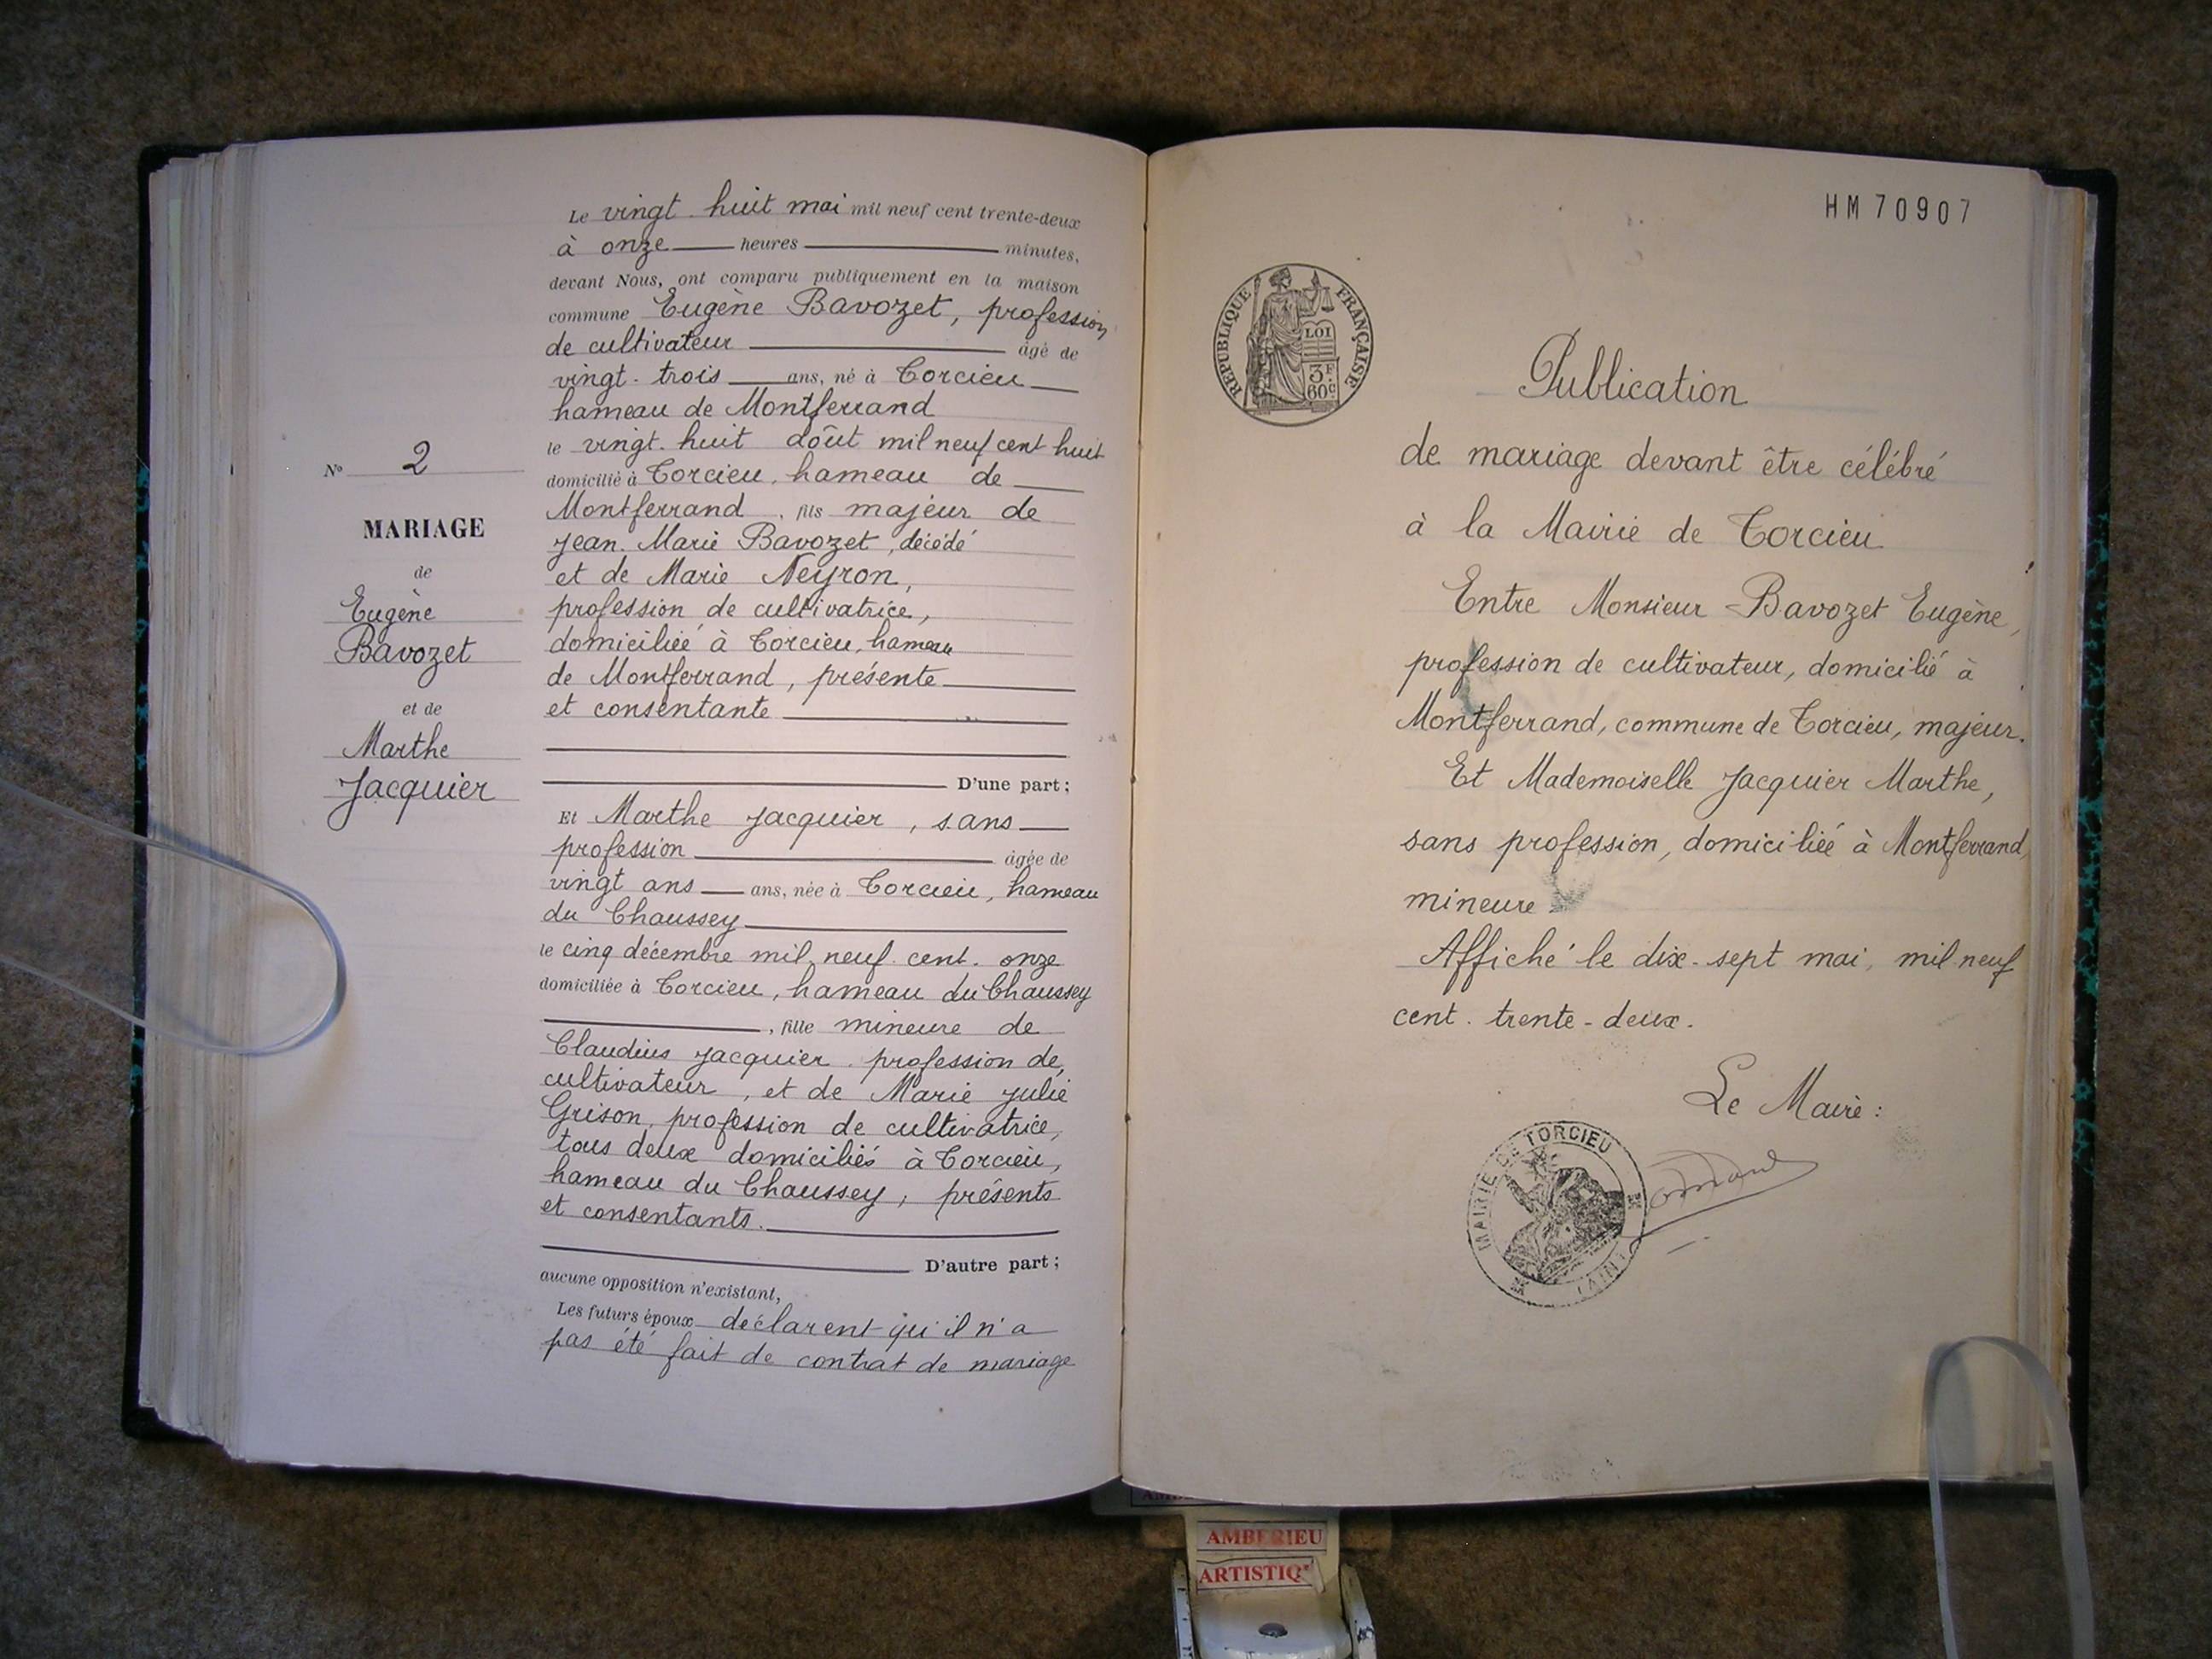 Le vingt-huit mai mil neuf cent trente-deux
à onze heures minutes,
devant Nous, ont comparu publiquement en la maison
commune Eugène Bavozet, profession
de cultivateur âgé de
vingt-trois ans, né à Torcieu
hameau de Montferrand
le vingt-huit août mil neuf cent huit
domicilié à Torcieu, hameau de
Montferrand, fils majeur de
Jean-Marie Bavozet, décédé
et de Marie Neyron,
profession de cultivatrice,
domiciliée à Torcieu, hameau
de Montferrand, présente
et consentante
D'une part;
Et Marthe Jacquier, sans
profession âgée de
vingt ans ans, née à Torcieu, hameau
du Chaussey
le cinq décembre mil neuf cent onze
domiciliée à Torcieu, hameau du Chaussey
, fille mineure de
Claudius Jacquier profession de
cultivateur, et de Marie Julie
Grison, profession de cultivatrice,
tous deux domiciliés à Torcieu,
hameau du Chaussey, présents
et consentants.
D'autre part;
aucune opposition n'existant,
Les futurs époux déclarent qu'il n'a
pas été fait de contrat de mariage
N° 2
MARIAGE
de
Eugène
Bavozet
et de
Marthe
Jacquier
HM 70907
RÉPUBLIQUE FRANÇAISE
LOI
3F
60c
Publication
de mariage devant être célébré
à la Mairie de Torcieu
Entre Monsieur Bavozet Eugène,
profession de cultivateur, domicilié à
Montferrand, commune de Torcieu, majeur.
Et Mademoiselle Jacquier Marthe,
sans profession, domiciliée à Montferrand,
mineure
Affiché le dix-sept mai, mil neuf
cent-trente-deux.
Le Maire:
MAIRIE DE TORCIEU
(AIN)
AMBERIEU
ARTISTIQ